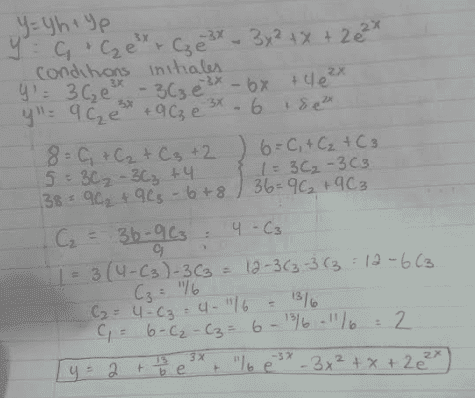 y = yh + yp
y = C₁ + C₂e^3x + C₃e^-3x - 3x² + x + 2e^2x
conditions initiales
y' = 3C₂e^3x - 3C₃e^-3x - 6x + 4e^2x
y'' = 9C₂e^3x + 9C₃e^-3x - 6 + 8e^2x
8 = C₁ + C₂ + C₃ + 2 } 6 = C₁ + C₂ + C₃
5 = 3C₂ - 3C₃ + 4 } 1 = 3C₂ - 3C₃
38 = 9C₂ + 9C₃ - 6 + 8 } 36 = 9C₂ + 9C₃
C₂ = (36 - 9C₃)/9 = 4 - C₃
1 = 3(4 - C₃) - 3C₃ = 12 - 3C₃ - 3C₃ = 12 - 6C₃
C₃ = 11/6
C₂ = 4 - C₃ = 4 - 11/6 = 13/6
C₁ = 6 - C₂ - C₃ = 6 - 13/6 - 11/6 = 2
y = 2 + 13/6 e^3x + 11/6 e^-3x - 3x² + x + 2e^2x